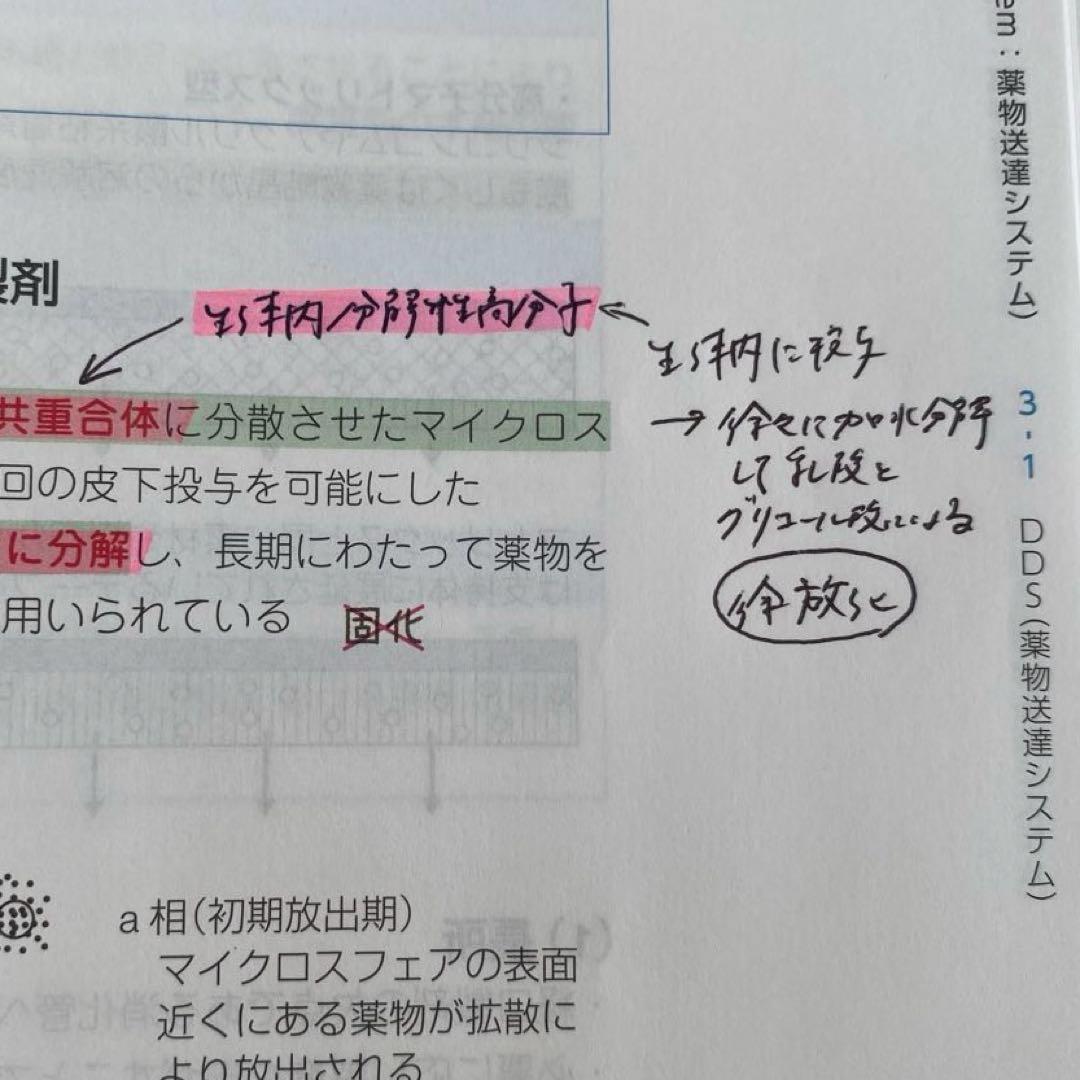 em：薬物送達システム）
製剤
生体内分解性高分子
生体内に投与
共重合体に分散させたマイクロス
→徐々に加水分解
して乳酸と
回の皮下投与を可能にした
グリコール酸になる
に分解し、長期にわたって薬物を
徐放化
用いられている
固化
3・1 DDS（薬物送達システム）
a相（初期放出期）
マイクロスフェアの表面
近くにある薬物が拡散に
より放出される